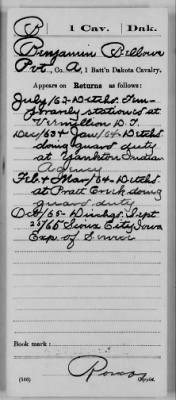 B | 1 Cav. | Dak.
Benjamin Bellows
Pvt., Co. A, 1 Batt'n Dakota Cavalry.
Appears on Returns as follows:
July/62 - Detchd. Tem-
porarily stationed at
Vermillion D.T.
Dec/63 & Jan/64 - Detchd.
doing guard duty
at Yankton Indian
Agency
Feb & Mar/64 - Detchd
at Pratt Creek doing
guard duty
Oct/65 - Dischgd. Sept
25/65 Sioux City Iowa
Exp. of Service
Book mark:
(546)
Copyist.